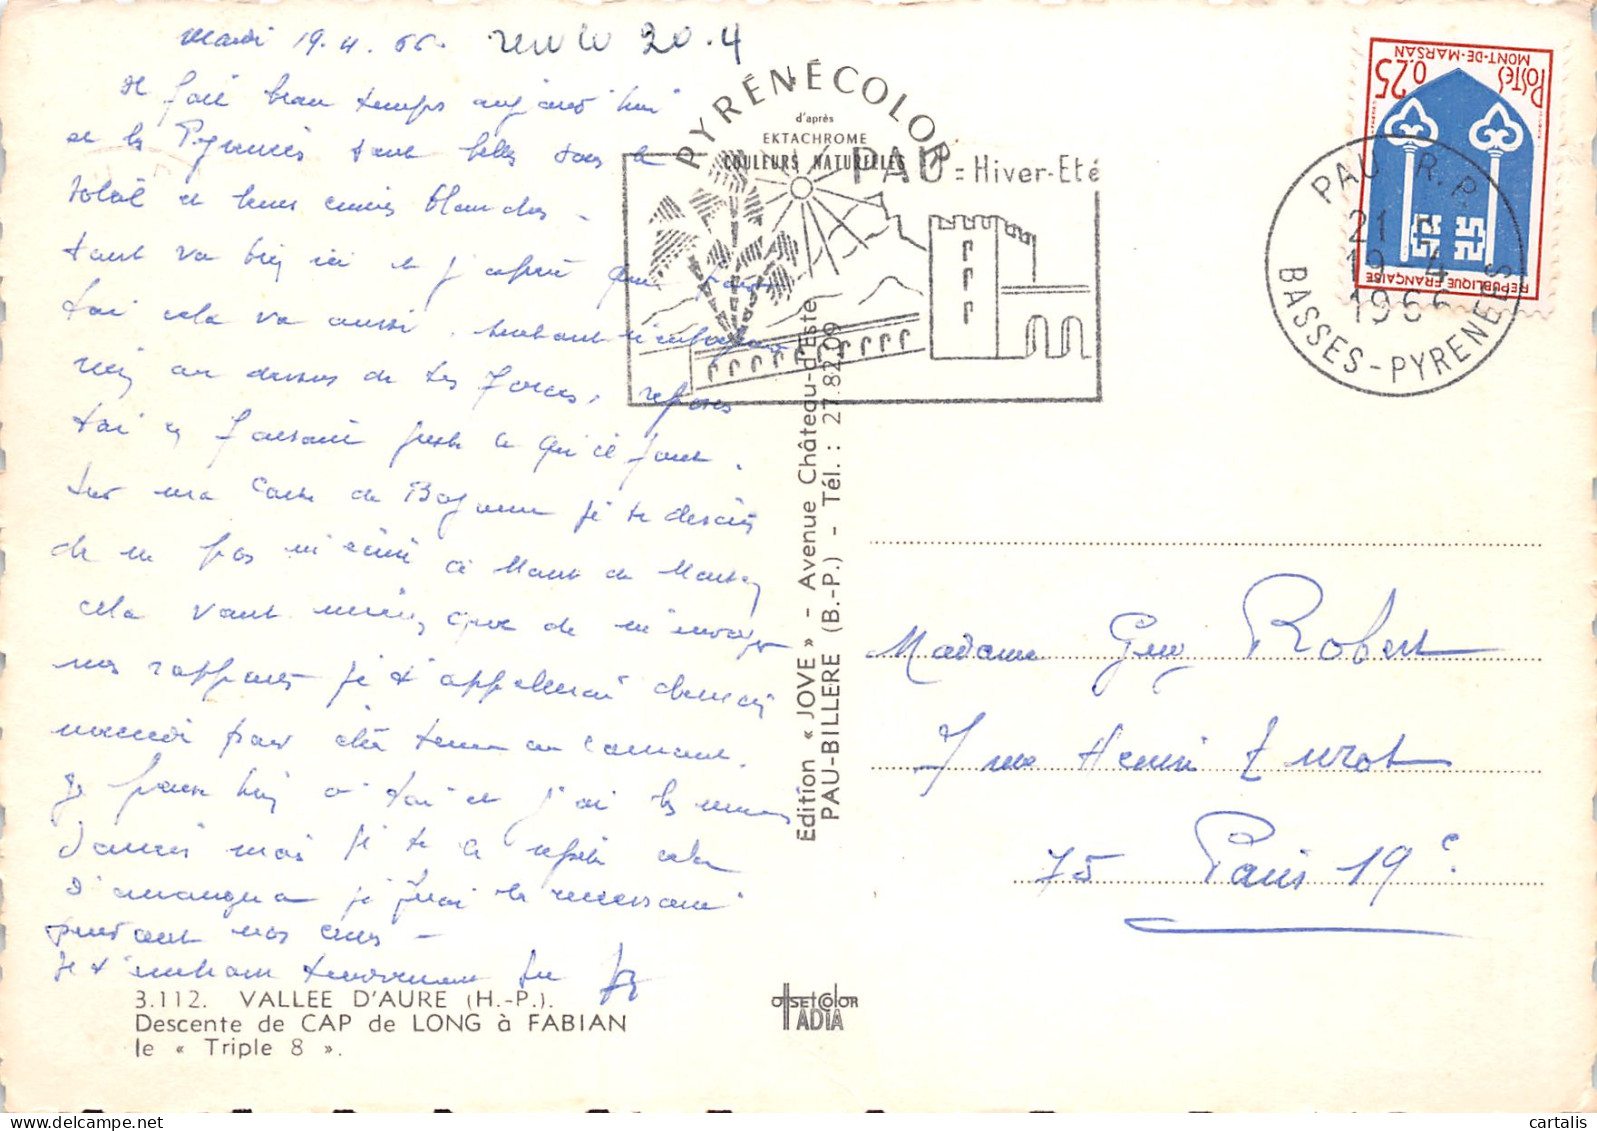 Mardi 19.4.66.
20.4
Il fait beau temps aujourd'hui
et les Pyrénées sont belles sous le
soleil et leurs cimes blanches -
tout va bien ici et j'espère que pour
toi cela va aussi. surtout n'entreprend
rien au dessus de tes forces, reposes
toi en faisant juste ce qu'il faut.
Sur ma carte de Bayonne je te disais
de ne pas m'écrire à Mont de Marsan
cela vaut mieux que de m'envoyer
mes rapports je t'appellerai
pour être tenu au courant.
Je pense bien à toi et j'ai les mêmes
soucis mais je te le répète cela
s'arrangera je ferai le nécessaire
pendant mes
Je t'embrasse tendrement
3.112. VALLEE D'AURE (H.-P.).
Descente de CAP de LONG à FABIAN
le « Triple 8 ».
PYRÉNÉCOLOR
d'après
EKTACHROME
COULEURS NATURELLES
PAU = Hiver-Eté
Edition « JOVE » - Avenue Château-d'Este
PAU-BILLERE (B.-P.) - Tél. : 27.82.09
OFFSET COLOR
IADIA
POSTES
0,25
MONT-DE-MARSAN
REPUBLIQUE FRANÇAISE
PAU R.P.
21 H
19-4
1966
BASSES-PYRENEES
Madame Guy Robert
7 rue Henri Turot
75 Paris 19e
cartalis